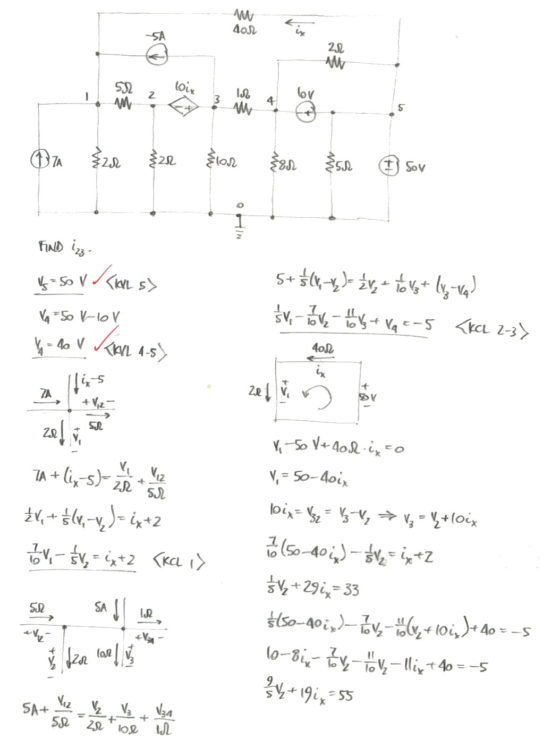 40Ω
iₓ
-5A
2Ω
5Ω
10iₓ
1Ω
10V
1
2
3
4
5
− +
+
7A
2Ω
2Ω
10Ω
8Ω
5Ω
50V
0
FIND i₂₃.
V₅ = 50 V ✓ <KVL 5>
V₄ = 50 V − 10 V
V₄ = 40 V ✓ <KVL 4-5>
iₓ−5
7A
+ V₁₂ −
5Ω
2Ω
+ V₁ −
7A + (iₓ−5) = V₁/2Ω + V₁₂/5Ω
1/2 V₁ + 1/5 (V₁−V₂) = iₓ+2
7/10 V₁ − 1/5 V₂ = iₓ+2 <KCL 1>
5Ω
5A
1Ω
+ V₁₂ −
+ V₃₄ −
+ V₂ −
2Ω
10Ω
+ V₃ −
5A + V₁₂/5Ω = V₂/2Ω + V₃/10Ω + V₃₄/1Ω
5 + 1/5 (V₁−V₂) = 1/2 V₂ + 1/10 V₃ + (V₃−V₄)
1/5 V₁ − 7/10 V₂ − 11/10 V₃ + V₄ = −5 <KCL 2-3>
40Ω
iₓ
2Ω
+ V₁ −
+ 50V −
V₁ − 50 V + 40Ω · iₓ = 0
V₁ = 50 − 40iₓ
10iₓ = V₃₂ = V₃ − V₂ ⇒ V₃ = V₂ + 10iₓ
7/10 (50 − 40iₓ) − 1/5 V₂ = iₓ + 2
1/5 V₂ + 29iₓ = 33
1/5 (50 − 40iₓ) − 7/10 V₂ − 11/10 (V₂ + 10iₓ) + 40 = −5
10 − 8iₓ − 7/10 V₂ − 11/10 V₂ − 11iₓ + 40 = −5
9/5 V₂ + 19iₓ = 55